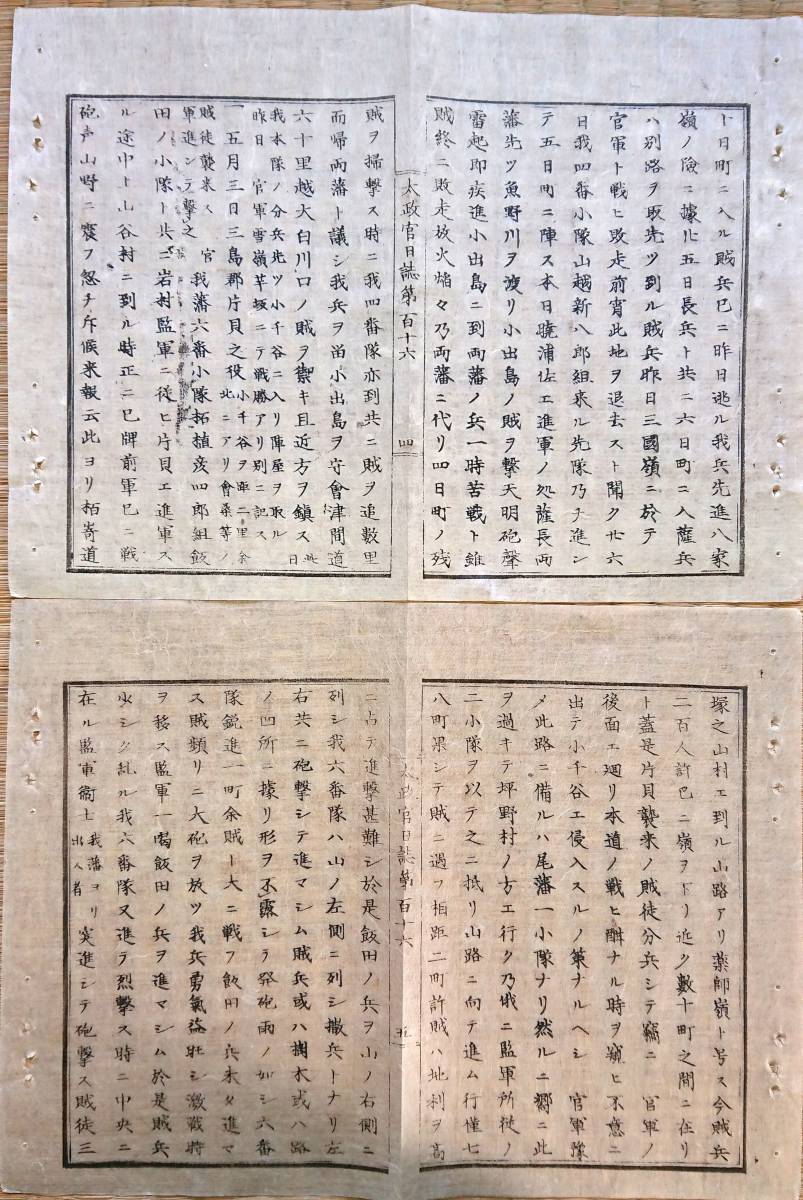 ト日町ニ入ル賊兵已ニ昨日逃ル我兵先進八家
嶺ノ險ニ據ル廿五日長兵ト共ニ六日町ニ入薩兵
ハ別路ヲ取先ツ到ル賊兵昨日三國嶺ニ於テ
官軍ト戰ヒ敗走前宵此地ヲ退去スト聞ク廿六
日我四番小隊山越新八郎組来ル先隊乃チ進シ
テ五日町ニ陣ス本日曉浦佐エ進軍ノ処薩長兩
藩先ツ魚野川ヲ渡リ小出島ノ賊ヲ撃天明砲聲
雷起即疾進小出島ニ到兩藩ノ兵一時苦戰ト雖
賊終ニ敗走放火焔々乃兩藩ニ代リ四日町ノ残
太政官日誌第百十六
四
賊ヲ掃撃ス時ニ我四番隊亦到共ニ賊ヲ追數里
而帰兩藩ト議シ我兵ヲ留小出島ヲ守會津間道
六十里越大白川口ノ賊ヲ禦キ且近方ヲ鎮ス此日
我本隊ノ分兵先ツ小千谷ニ入リ陣屋ヲ取ル
昨日官軍雪嶺芋坂ニテ戰勝アリ別ニ記ス
一五月三日三島郡片貝之役小千谷ヲ距二里余北ニアリ會桑等ノ
賊徒襲来ス官軍進テ撃之我藩六番小隊拓植彦四郎組飯
田ノ小隊ト共ニ岩村監軍ニ従ヒ片貝エ進軍ス
ル途中ト山谷村ニ到ル時正ニ巳牌前軍已ニ戰
砲声山野ニ震フ忽チ斥候来報云此ヨリ栢嵜道
塚之山村エ到ル山路アリ薬師嶺ト号ス今賊兵
二百人許已ニ嶺ヲ下リ近ク數十町之間ニ在リ
ト蓋是片貝襲来ノ賊徒分兵シテ竊ニ官軍ノ
後面エ廻リ本道ノ戰ヒ酣ナル時ヲ窺ヒ不意ニ
出テ小千谷エ侵入スルノ策ナルヘシ官軍豫
メ此路ニ備ルハ尾藩一小隊ナリ然ルニ嚮ニ此
ヲ過キテ坪野村ノ方エ行ク乃俄ニ監軍所従ノ
二小隊ヲ以テ之ニ抵リ山路ニ向テ進ム行僅七
八町果シテ賊ニ遇フ相距二町許賊ハ地利ヲ高
太政官日誌第百十六
五
ニ占テ進撃甚難シ於是飯田ノ兵ヲ山ノ右側ニ
列シ我六番隊ハ山ノ左側ニ列シ撒兵トナリ左
右共ニ砲撃シテ進マシム賊兵或ハ樹木或ハ路
ノ凹所ニ據リ形ヲ不露シテ発砲雨ノ如シ六番
隊鋭進一町余賊ト大ニ戰フ飯田ノ兵未タ進マ
ス賊頻リニ大砲ヲ放ツ我兵勇氣益壮シ激戰時
ヲ移ス監軍一喝飯田ノ兵ヲ進マシム於是賊兵
少シク乱ル我六番隊又進テ烈撃ス時ニ中央ニ
在ル監軍衛士我藩ヨリ出人者突進シテ砲撃ス賊徒三